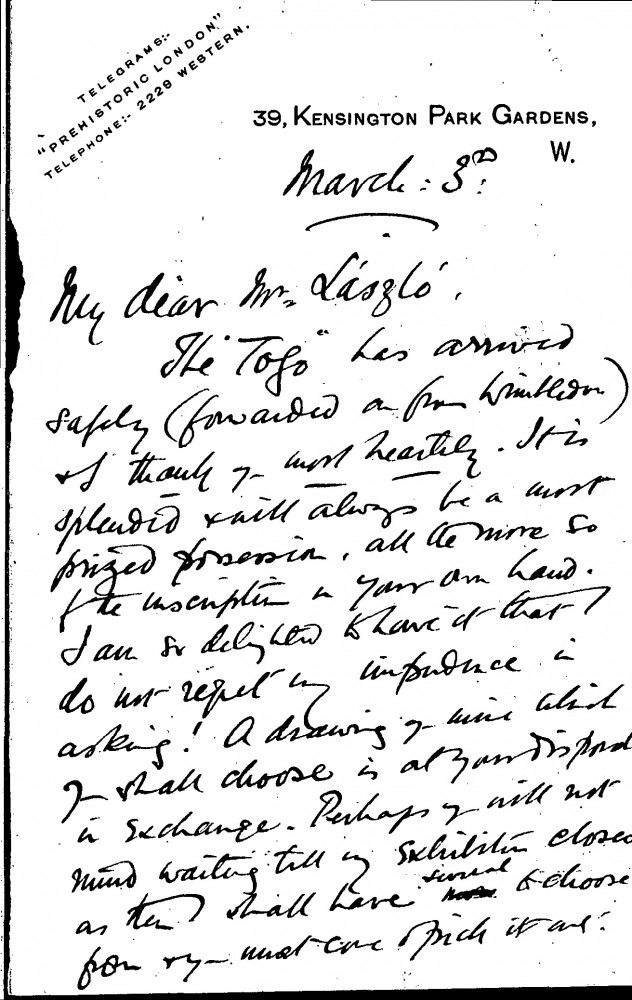 TELEGRAMS:-
"PREHISTORIC LONDON."
TELEPHONE:- 2229 WESTERN.
39, KENSINGTON PARK GARDENS,
W.
March: 3rd:
My dear Mr. László,
The "Togo" has arrived
safely (forwarded on from Wimbledon)
& I thank y– most heartily. It is
splendid & will always be a most
prized possession, all the more so
for the inscription in your own hand.
I am so delighted to have it that I
do not regret my impudence in
asking! A drawing of mine which
y– shall choose is at your disposal
in exchange. Perhaps y– will not
mind waiting till my exhibition closes
as then I shall have several to choose
from & y– must come & pick it out.